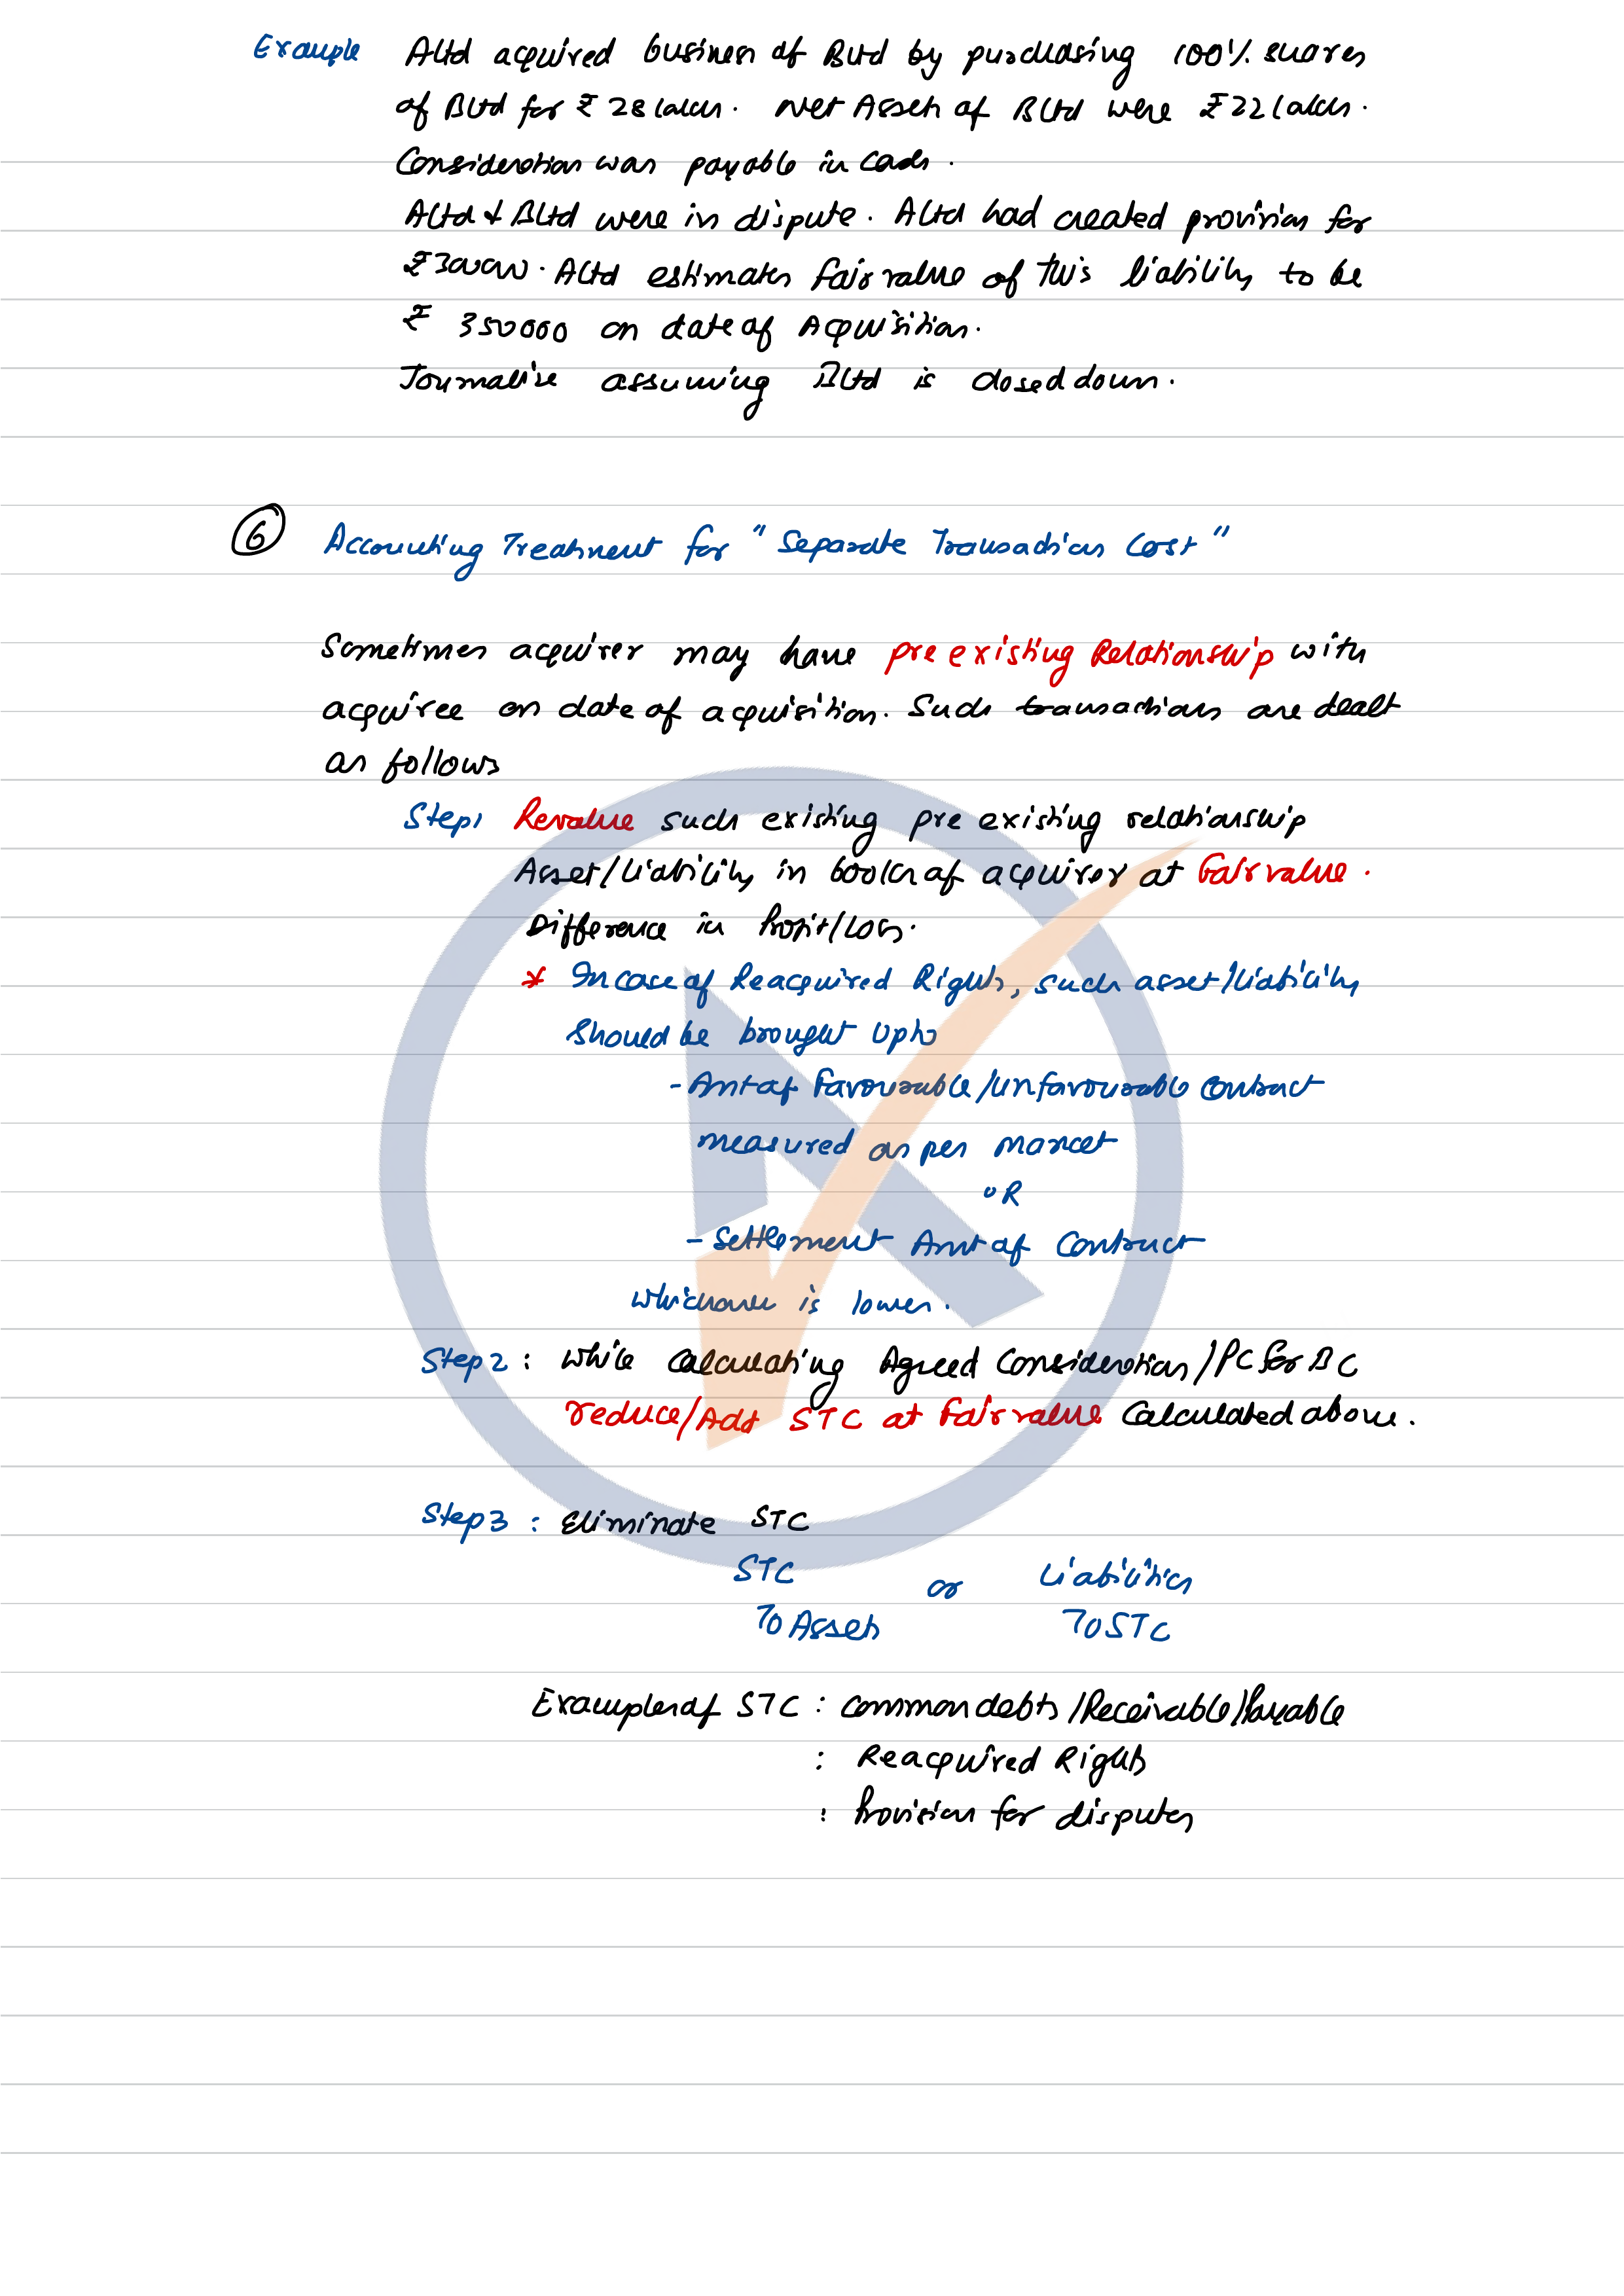 Example A Ltd acquired business of B Ltd by purchasing 100% shares
of B Ltd for ₹ 28 lakhs. Net Assets of B Ltd were ₹ 22 lakhs.
Consideration was payable in cash.
A Ltd & B Ltd were in dispute. A Ltd had created provision for
₹ 300000. A Ltd estimates fair value of this liability to be
₹ 350000 on date of Acquisition.
Journalise assuming B Ltd is closed down.
6 Accounting Treatment for "Separate Transaction Cost"
Sometimes acquirer may have pre existing Relationship with
acquiree on date of acquisition. Such transactions are dealt
as follows
Step1 Revalue such existing pre existing relationship
Asset/Liability in books of acquirer at Fair value.
Difference in Profit/Loss.
* In case of Reacquired Rights, such asset/liability
should be brought upto
- Amt of Favourable/Unfavourable contract
measured as per market
OR
- Settlement Amt of Contract
whichever is lower.
Step 2 : While Calculating Agreed Consideration/PC for BC
reduce/Add STC at Fair value Calculated above.
Step 3 : Eliminate STC
STC or Liabilities
To Assets To STC
Examples of STC : Common debts/Receivable/Payable
: Reacquired Rights
: Provision for disputes